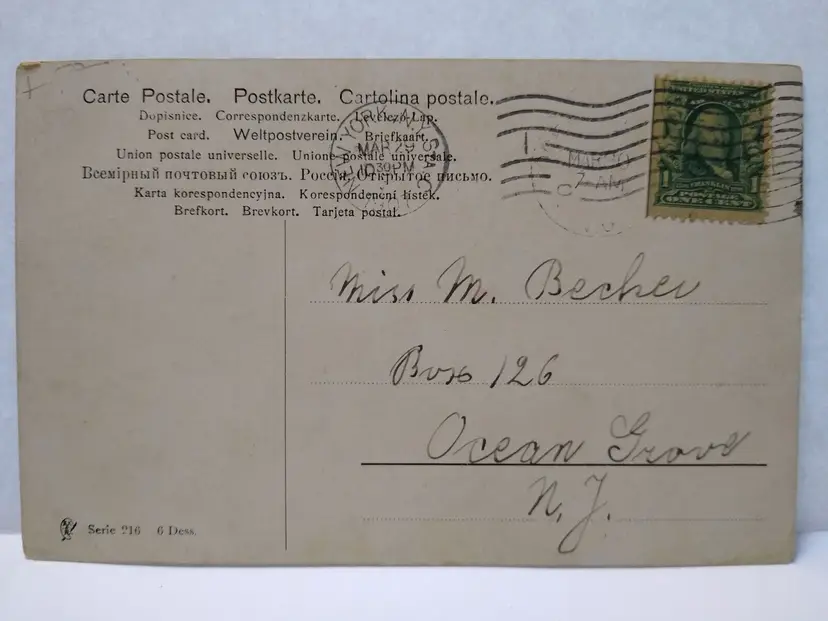 Carte Postale. Postkarte. Cartolina postale.
Dopisnice. Correspondenzkarte. Levelező-Lap.
Post card. Weltpostverein. Briefkaart.
Union postale universelle. Unione postale universale.
Всемірный почтовый союзъ. Россія, открытое письмо.
Karta korespondencyjna. Korespondenční lístek.
Brefkort. Brevkort. Tarjeta postal.
NEW YORK, N.Y. STA. C
MAR 29
10 30 PM
MAR 30
7-AM
UNITED STATES
FRANKLIN
1 POSTAGE 1
ONE CENT
Miss M. Becker
Box 126
Ocean Grove
N. J.
Serie 216 6 Dess.